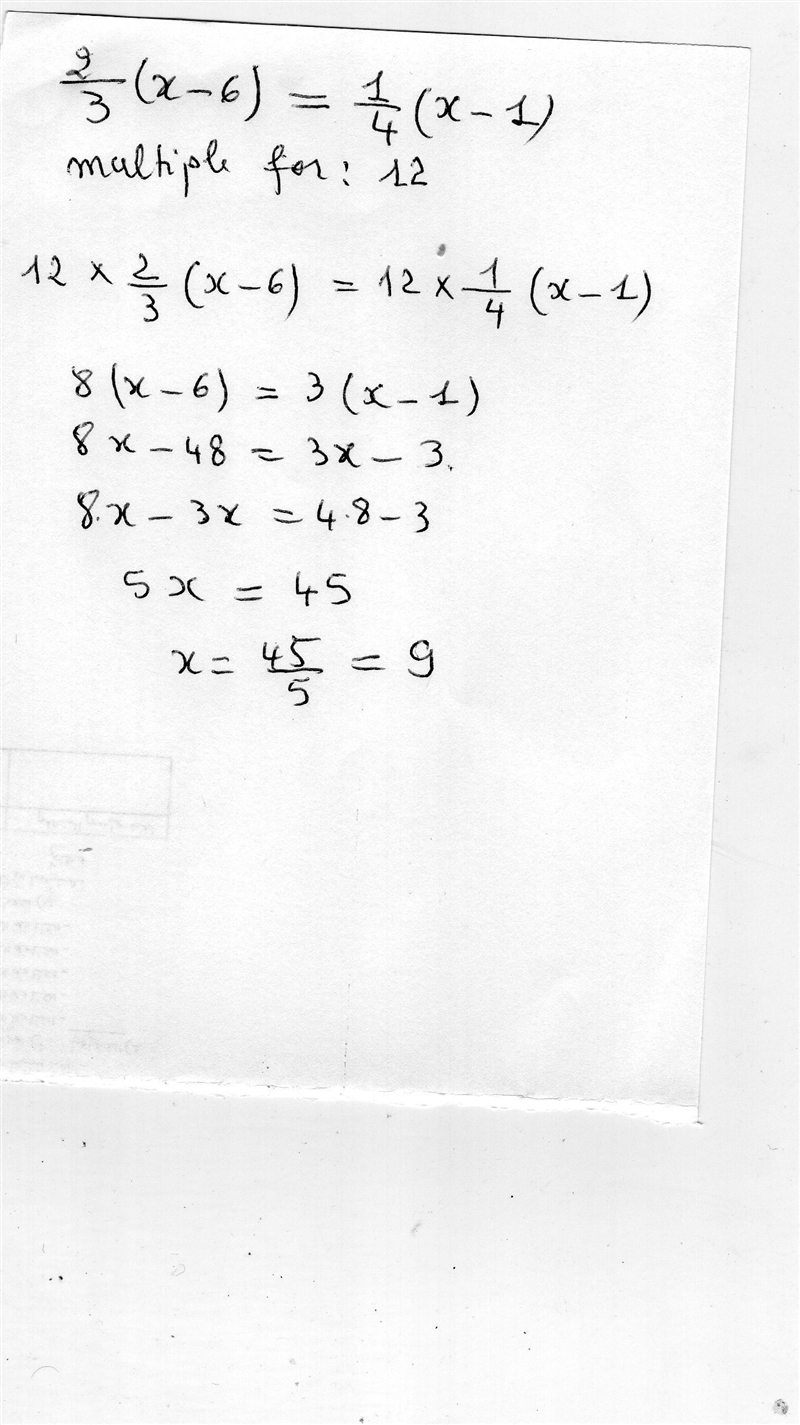 2/3 (x-6) = 1/4 (x-1)
multiple for: 12
12 × 2/3 (x-6) = 12 × 1/4 (x-1)
8(x-6) = 3(x-1)
8x-48 = 3x-3.
8.x-3x = 4.8-3
5x = 45
x = 45/5 = 9